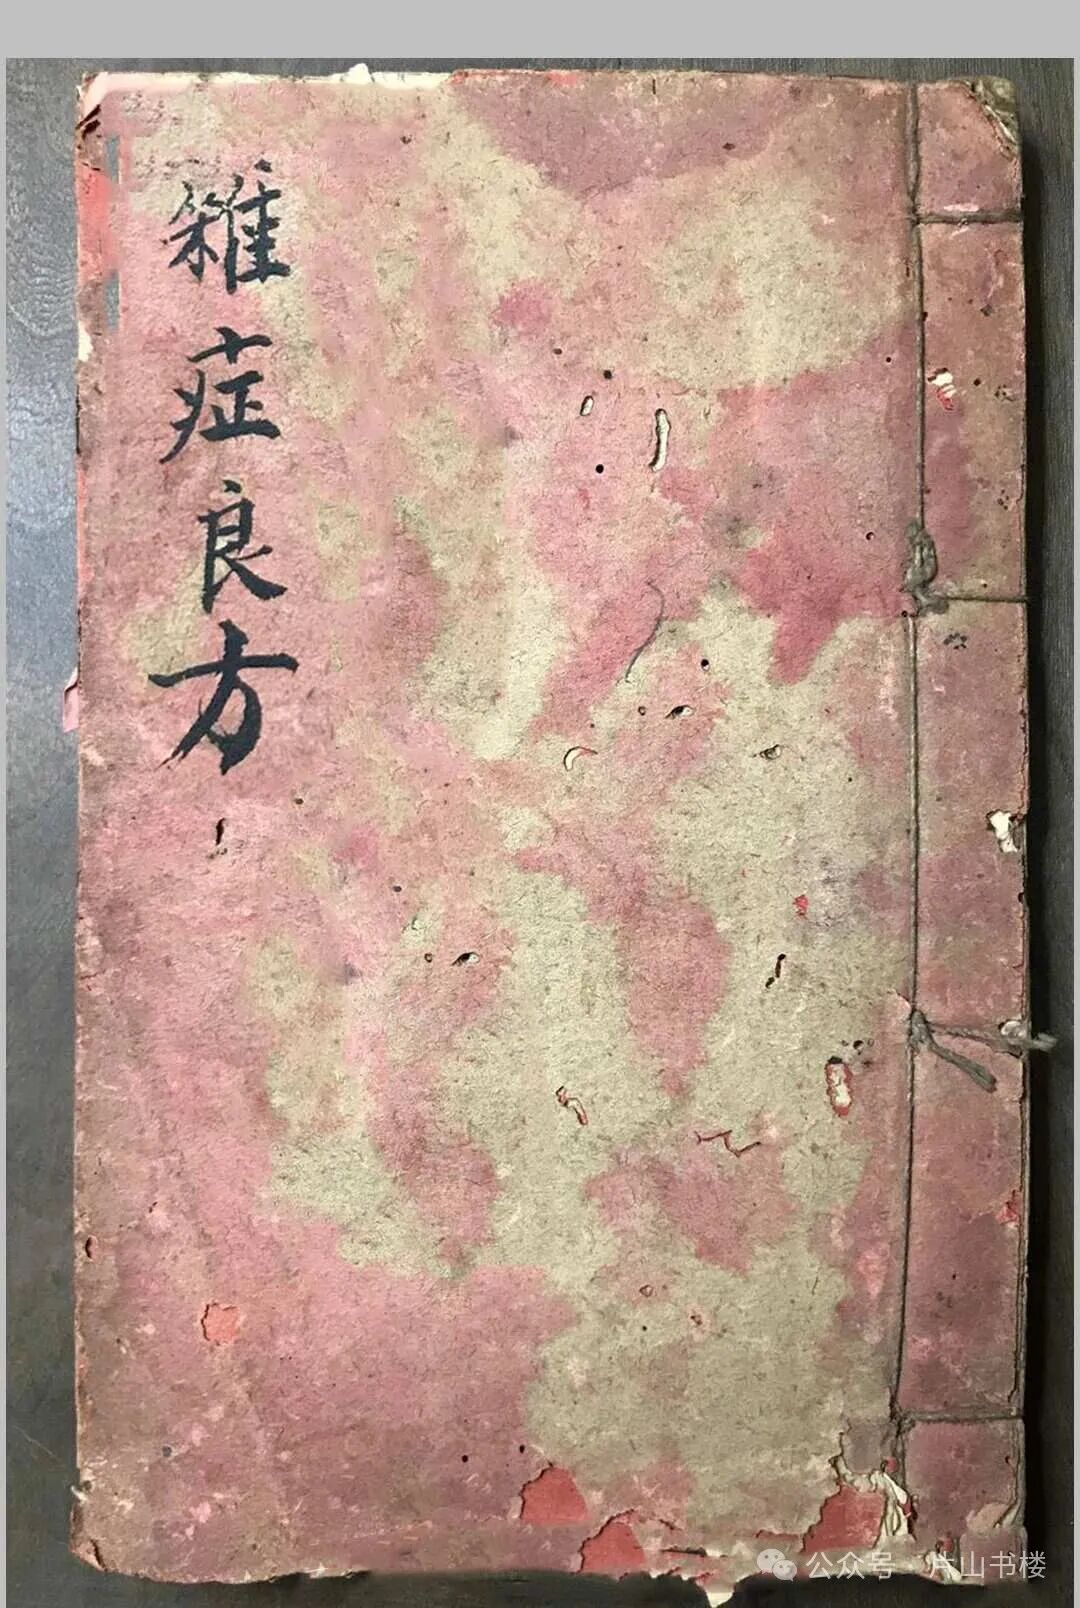 雜症良方
公众号 · 片山书楼